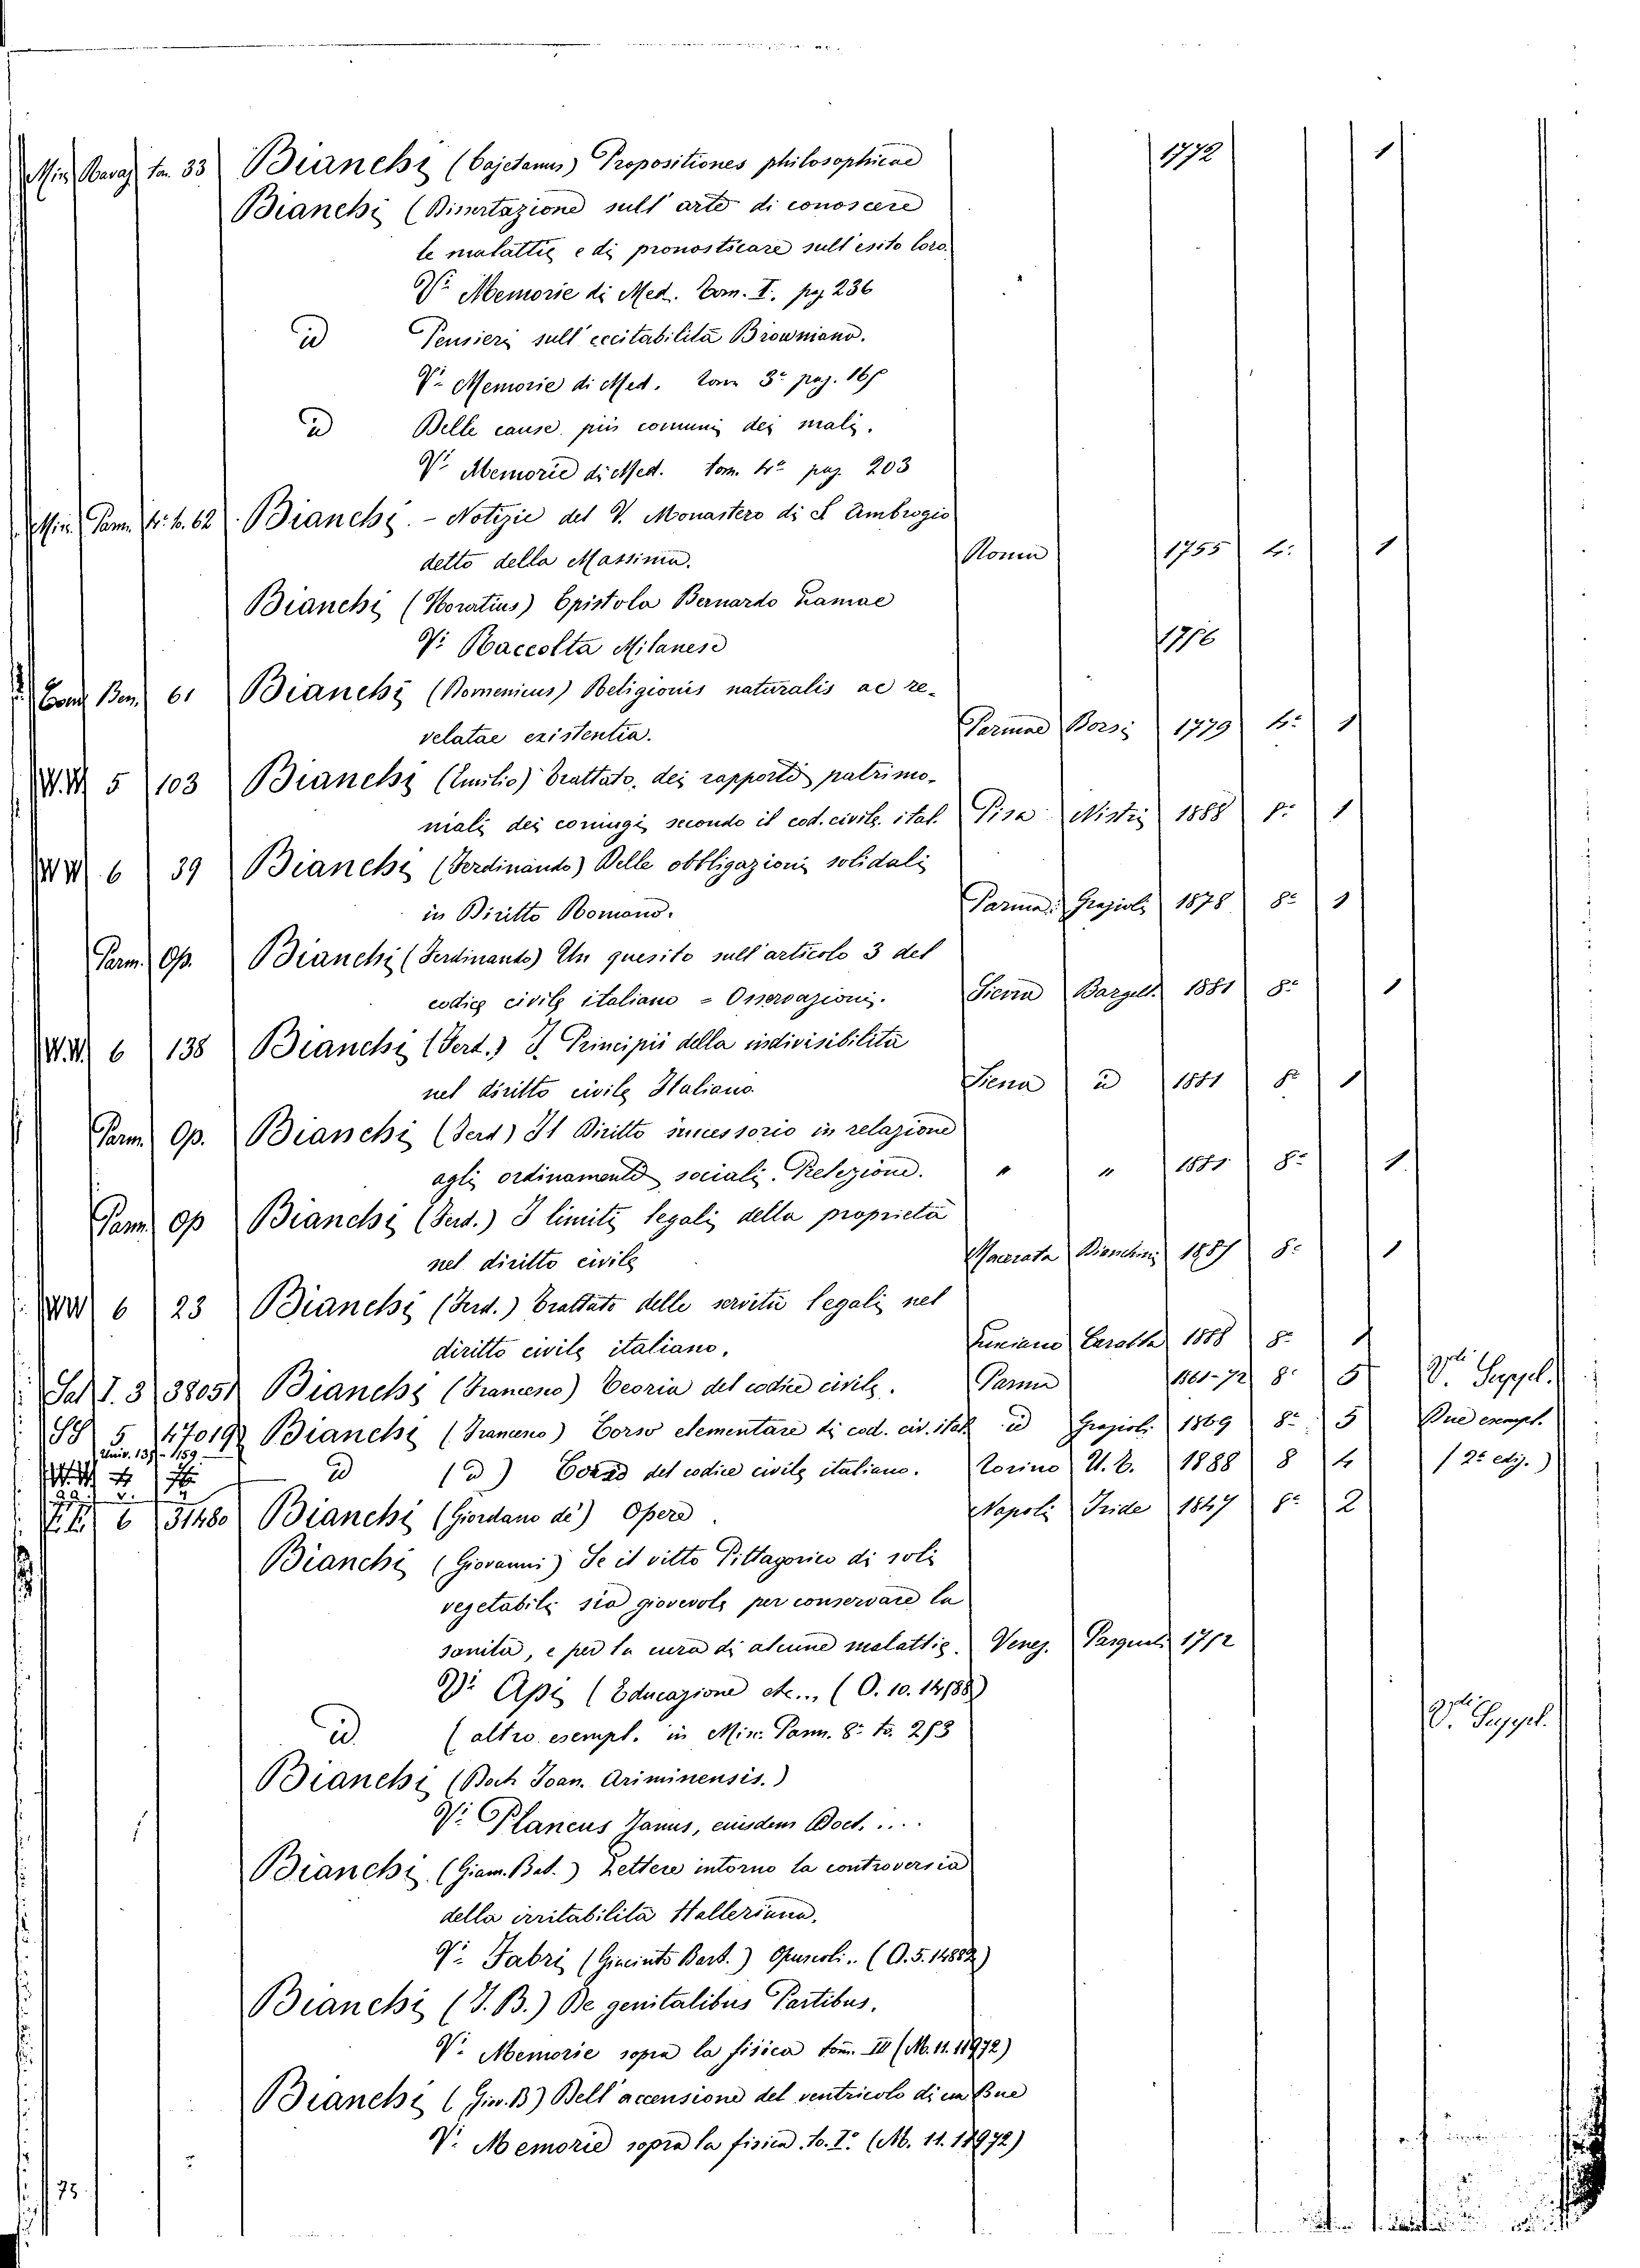 Min. Ravaz to. 33 Bianchi (Cajetanus) Propositiones philosophicae 1772 1
Bianchi (Dissertazione sull' arte di conoscere
le malattie e di pronosticare sull'esito loro.
Vi Memorie di Med. Tom. I. pag 236
id Pensieri sull' eccitabilità Browniano.
Vi Memorie di Med. Tom 3º pag. 167
id Delle cause più comuni dei mali.
Vi Memorie di Med. tom. 4º pag 203
Min. Parm. 4º t. 62 Bianchi. - Notizie del V. Monastero di S Ambrogio
detto della Massima. Roma 1755 4: 1
Bianchi (Horatius) Epistola Bernardo Lamae
Vi Raccolta Milanese
61 Bianchi (Domenicus) Religionis naturalis ac re-
velatae existentia. Parmae Borsi 1779 4: 1
W.W 5 103 Bianchi (Emilio) Trattato, dei rapporti patrimo-
niali dei coniugi secondo il cod. civile ital. Pisa Nistri 1888 8: 1
WW. 6 39 Bianchi (Ferdinando) Delle obbligazioni solidali
in Diritto Romano. Parma Grazioli 1878 8: 1
Parm. Op. Bianchi (Ferdinando) Un quesito sull'articolo 3 del
codice civile italiano = Osservazioni. Siena Bargell. 1881 8: 1
W.W. 6 138 Bianchi (Ferd.) I Principii della indivisibilità
nel diritto civile Italiano. Siena id 1881 8: 1
Parm. Op. Bianchi (Ferd) Il Diritto successorio in relazione
agli ordinamenti sociali. Prelezione. " " 1881 8: 1
Parm. Op Bianchi (Ferd.) I limiti legali della proprietà
nel diritto civile Macerata Bianchini 1887 8: 1
WW 6 23 Bianchi (Ferd.) Trattato delle servitù legali nel
diritto civile italiano. Lanciano Carabba 1888 8: 1
Sal. I. 3 38051 Bianchi (Francesco) Teoria del codice civile. Parma 1861-72 8: 5 V. Suppel.
SS 5 47019 Bianchi (Francesco) Corso elementare di cod. civ. ital. id Grazioli 1869 8: 5 Due esempl.
Univ. 137-1159
id (id) Corso del codice civile italiano. Torino U. T. 1888 8 4 (2ª ediz.)
6 31480 Bianchi (Giordano de') Opere. Napoli Iride 1847 8: 2
Bianchi (Giovanni) Se il vitto Pittagorico di soli
vegetabili sia giovevole per conservare la
sanità, e per la cura di alcune malattie. Venez. Pasquali 1752
Vi Api (Educazione etc... (O. 10. 14188)
id (altro esempl. in Min. Parm. 8: to. 283 V. Suppel.
Bianchi (Doct Joan. Ariminensis.)
Vi Plancus Janus, eiusdem Doct. ....
Bianchi (Giam. Bat.) Lettere intorno la controversia
della irritabilità Halleriana.
Vi Fabri (Giacinto Bart.) Opuscoli.. (O. 5. 14882)
Bianchi (J. B.) De genitalibus Partibus.
Vi Memorie sopra la fisica tom. III (M. 11. 11972)
Bianchi (Gio. B) Dell'accensione del ventricolo di un Bue
Vi Memorie sopra la fisica. to. I: (M. 11. 11972)
75